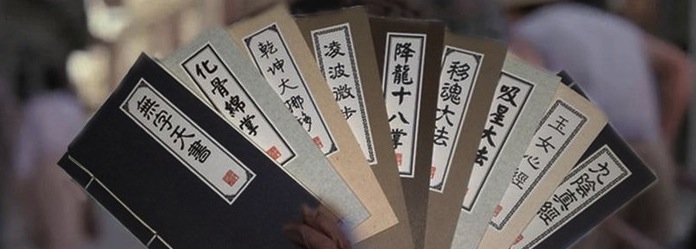 無字天書
化骨綿掌
乾坤大挪移
凌波微步
降龍十八掌
移魂大法
吸星大法
玉女心經
九陰真經